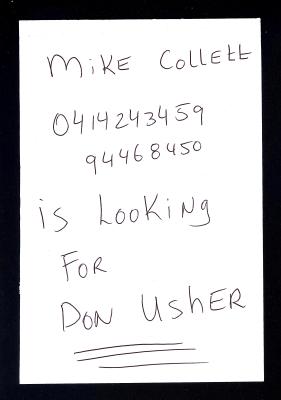 Mike Collett
0414243459
94468450
is Looking
FOR
DON UsHER